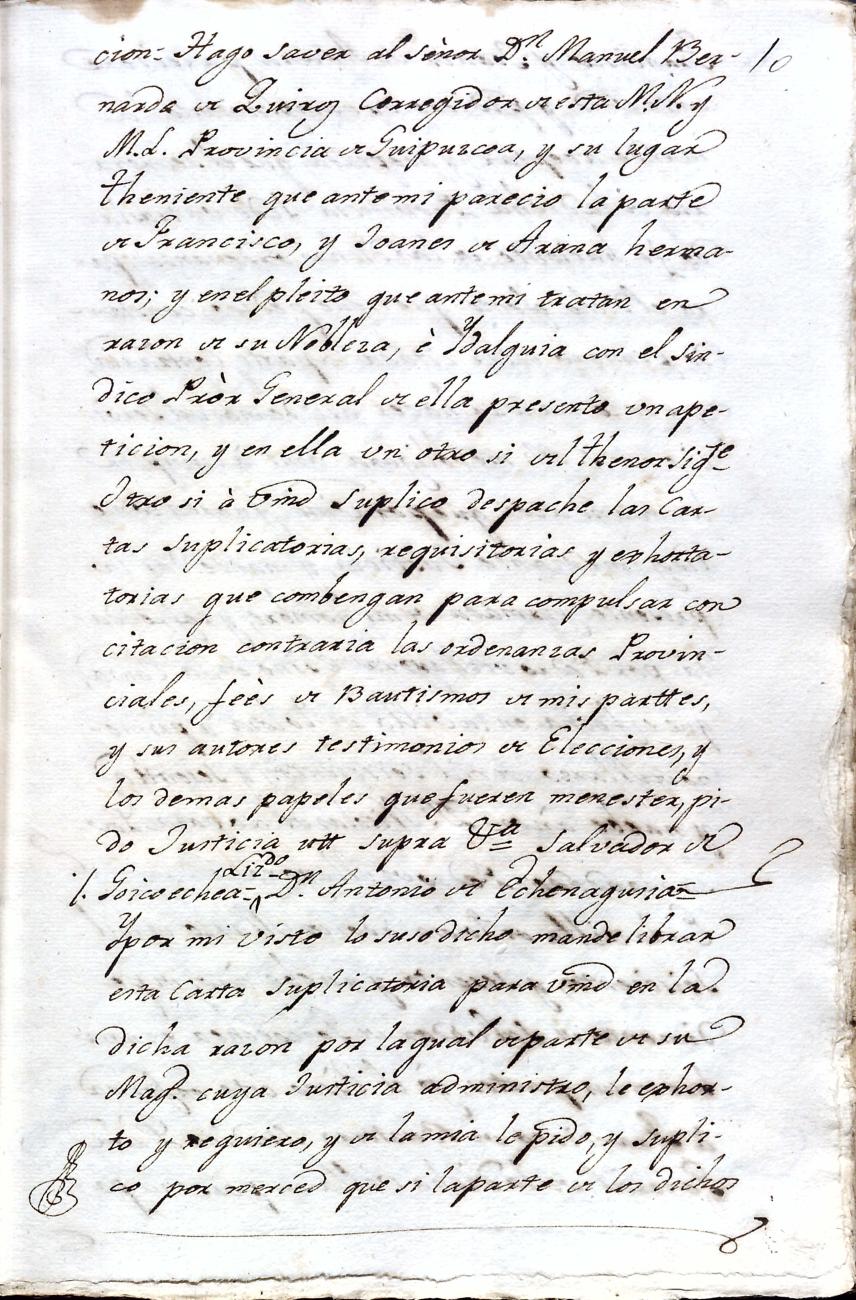 cion= Hago saver al señor Dn. Manuel Ber- 10
narda de Quiros Corregidor de esta M.N. y
M.L. Provincia de Guipuzcoa, y su lugar
theniente que ante mi parecio la parte
de Francisco, y Joanes de Arana herma-
nos; y en el pleito que ante mi tratan en
razon de su Nobleza, è Ydalguia con el sin-
dico Pròr General de ella presento una pe-
ticion, y en ella un otro si del thenor sigte
Otro si à Vmd suplico despache las Car-
tas suplicatorias, requisitorias y exhorta-
torias que combengan para compulsar con
citacion contraria las ordenanzas Provin-
ciales, feès de Bautismos de mis parttes,
y sus autores testimonios de Elecciones, y
los demas papeles que fueren menester, pi-
do Justicia utt supra Va Salvador de
/. Goicoechea= Lizdo Dn. Antonio de Echenagusia=
Y por mi visto lo susodicho mande librar
esta Carta Suplicatoria para Vmd en la
dicha razon por la qual de parte de su
Magd. cuya Justicia administro, le exhor-
to y requiero, y de la mia le pido, y supli-
co por merced que si la parte de los dichos